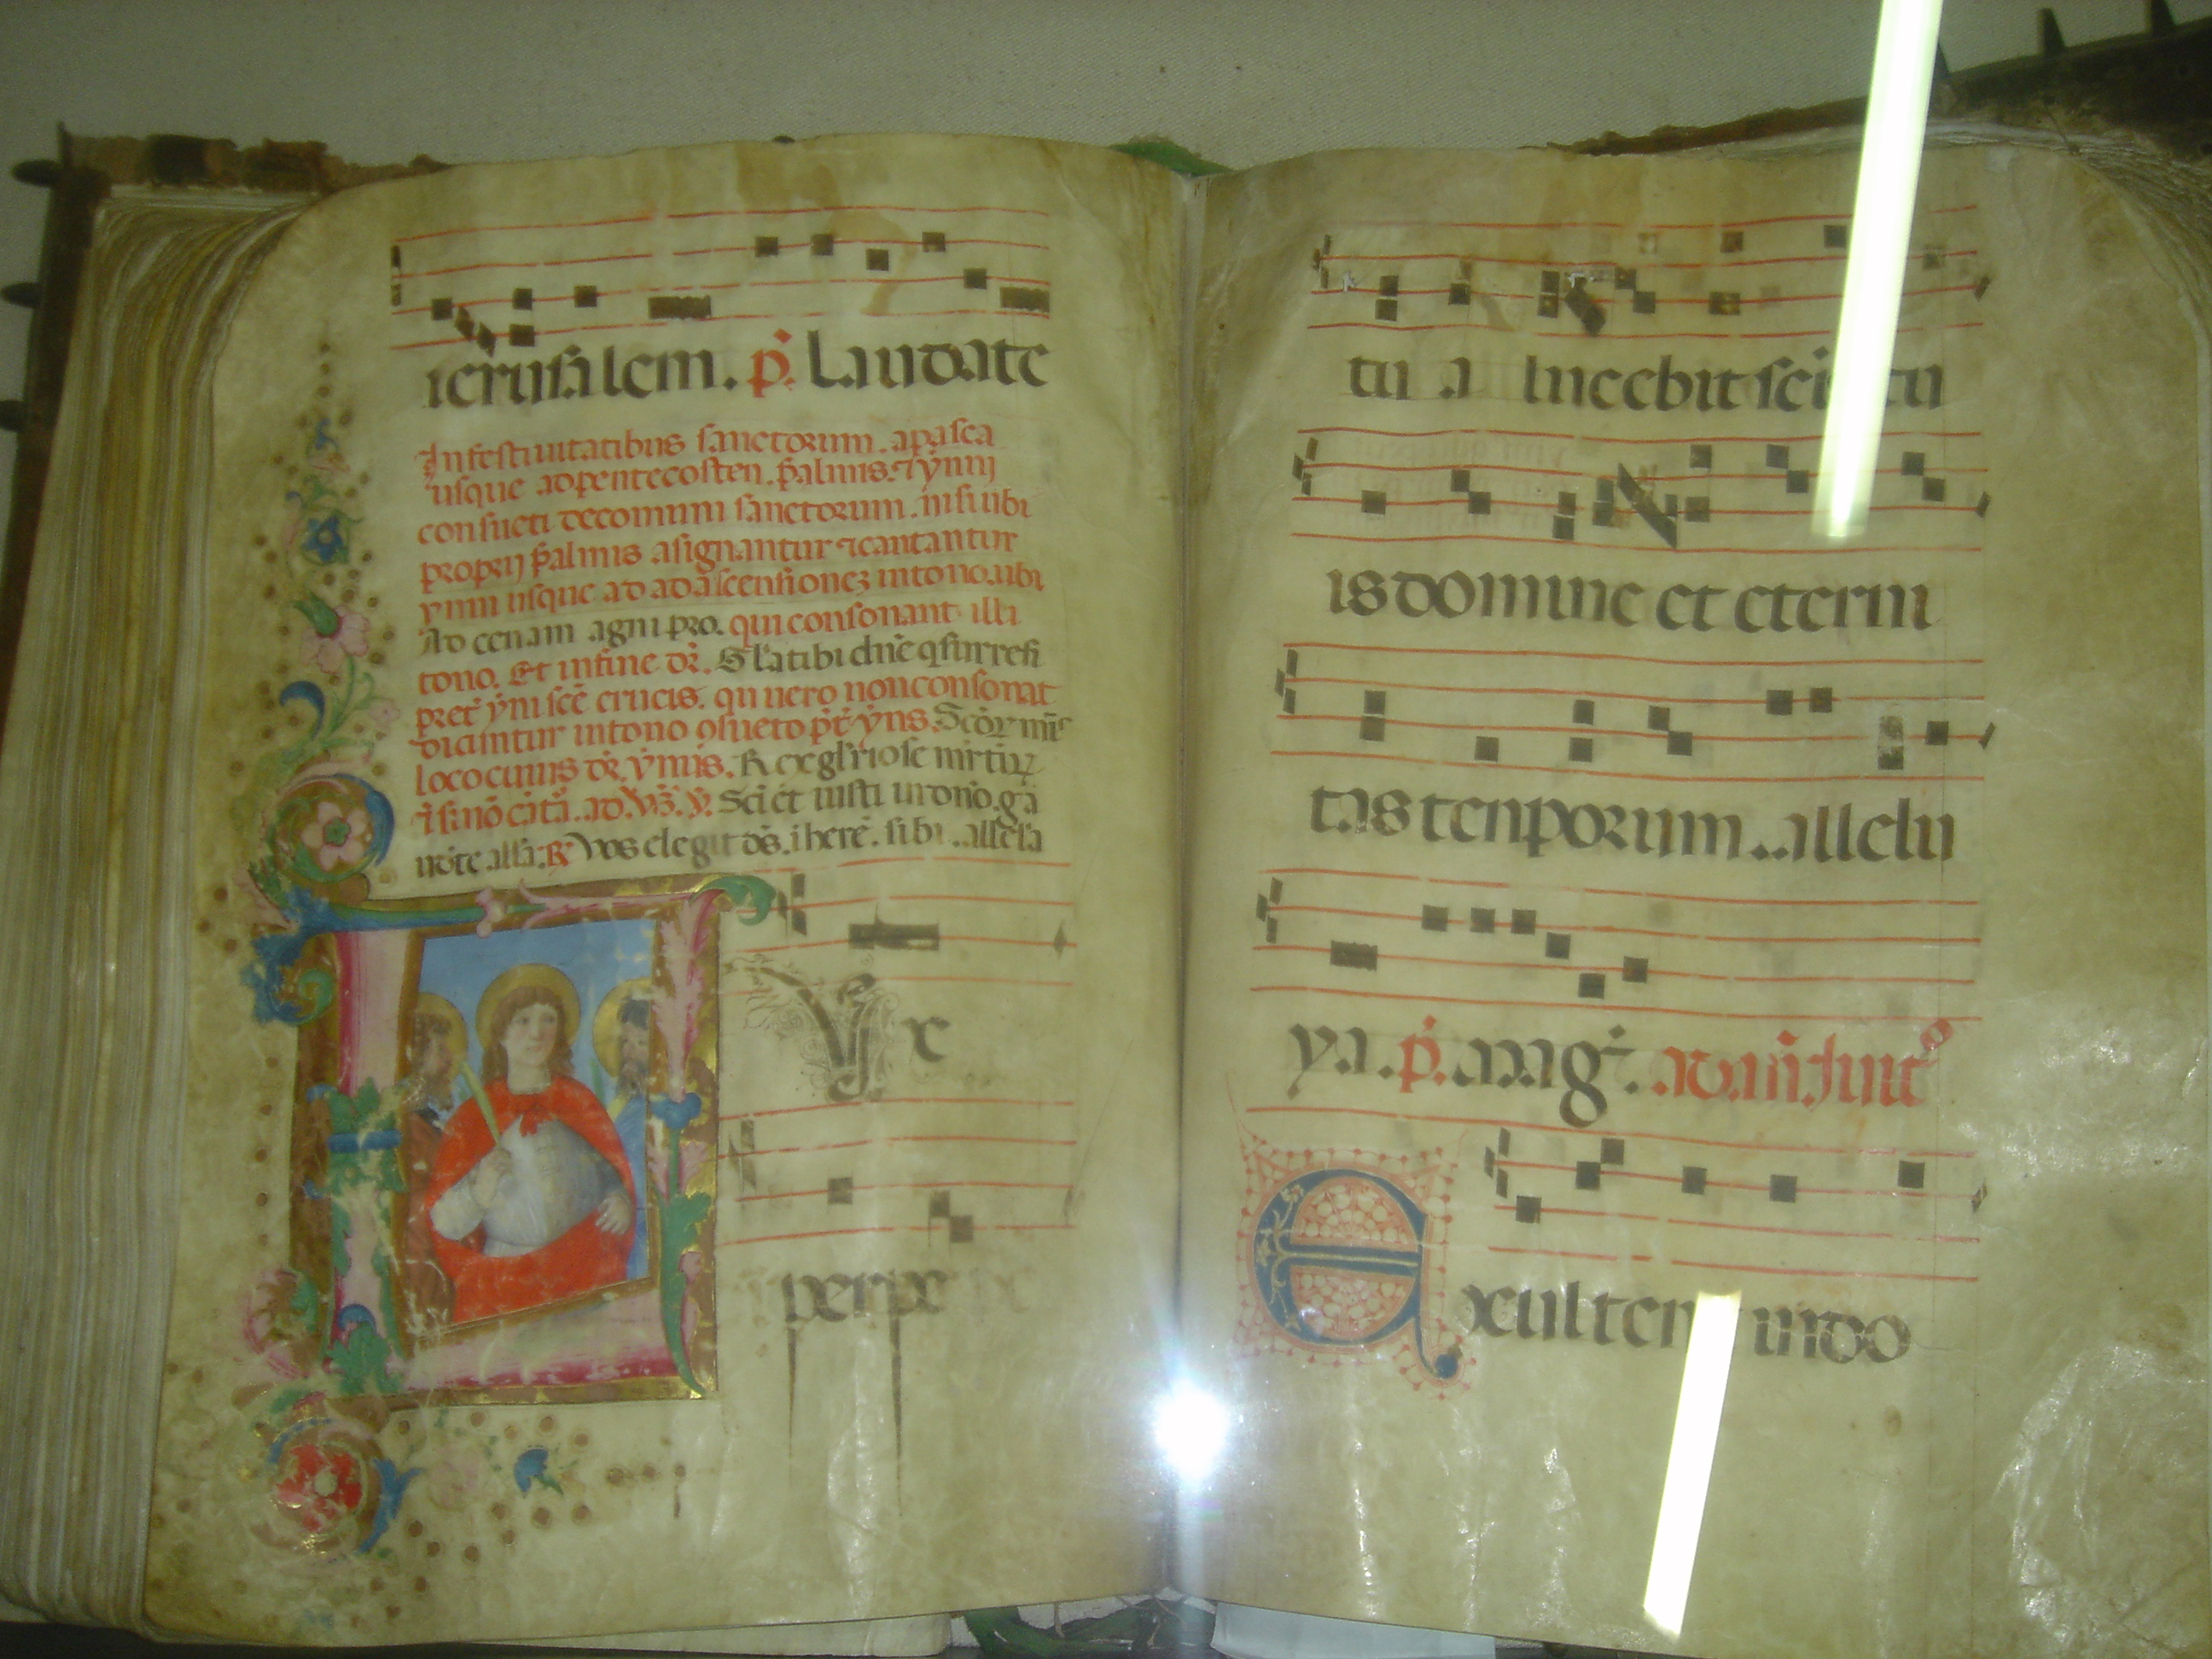 ierusalem. p̄. Laudate
In festiuitatibus sanctorum. apasca
usque ad pentecosten. psalmis. et ymni
consueti decomuni sanctorum. nisi ubi
proprij psalmis asignantur et cantantur
ymni usque ad ad ascensionez in tono. ubi
Ad cenam agni pro. qui consonant illi
tono. Et in fine dr̄. Gl'a tibi dn̄e q surrexi
pret ymi sc̄e crucis. qui uero non consonāt
dicuntur in tono ꝯsueto pt̄ yns. Scōꝝ
loco cuius dr̄. ymis. Rex gl'riose mr̄tiꝝ
Sc̄i et iusti in dno. ga
note. all'a. ℟ Vos elegit ds̄. i here. sibi. allel'a
Vx
perpe
tu a lucebit sc̄i tu
is domine et eterni
tas tenporum. allelu
ya. p̄. mag
Exultent in do